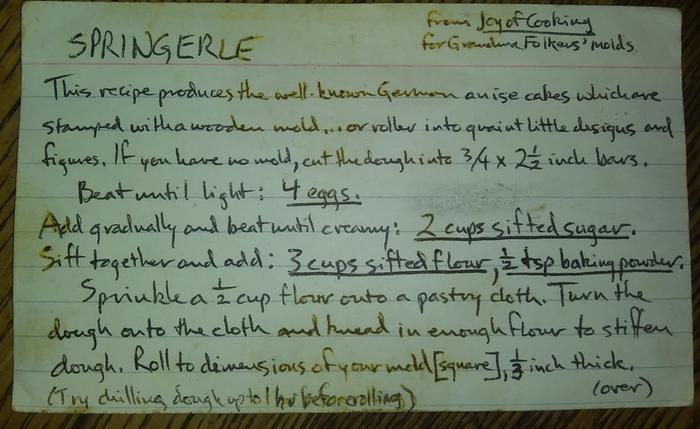 SPRINGERLE
from Joy of Cooking
for Grandma Folkers' molds.
This recipe produces the well-known German anise cakes which are
stamped with a wooden mold... or roller into quaint little designs and
figures. If you have no mold, cut the dough into 3/4 x 2 1/2 inch bars.
Beat until light: 4 eggs.
Add gradually and beat until creamy: 2 cups sifted sugar.
Sift together and add: 3 cups sifted flour, 1/2 tsp baking powder.
Sprinkle a 1/2 cup flour onto a pastry cloth. Turn the
dough onto the cloth and knead in enough flour to stiffen
dough. Roll to dimensions of your mold [square], 1/3 inch thick.
(Try chilling dough up to 1 hr before rolling)
(over)